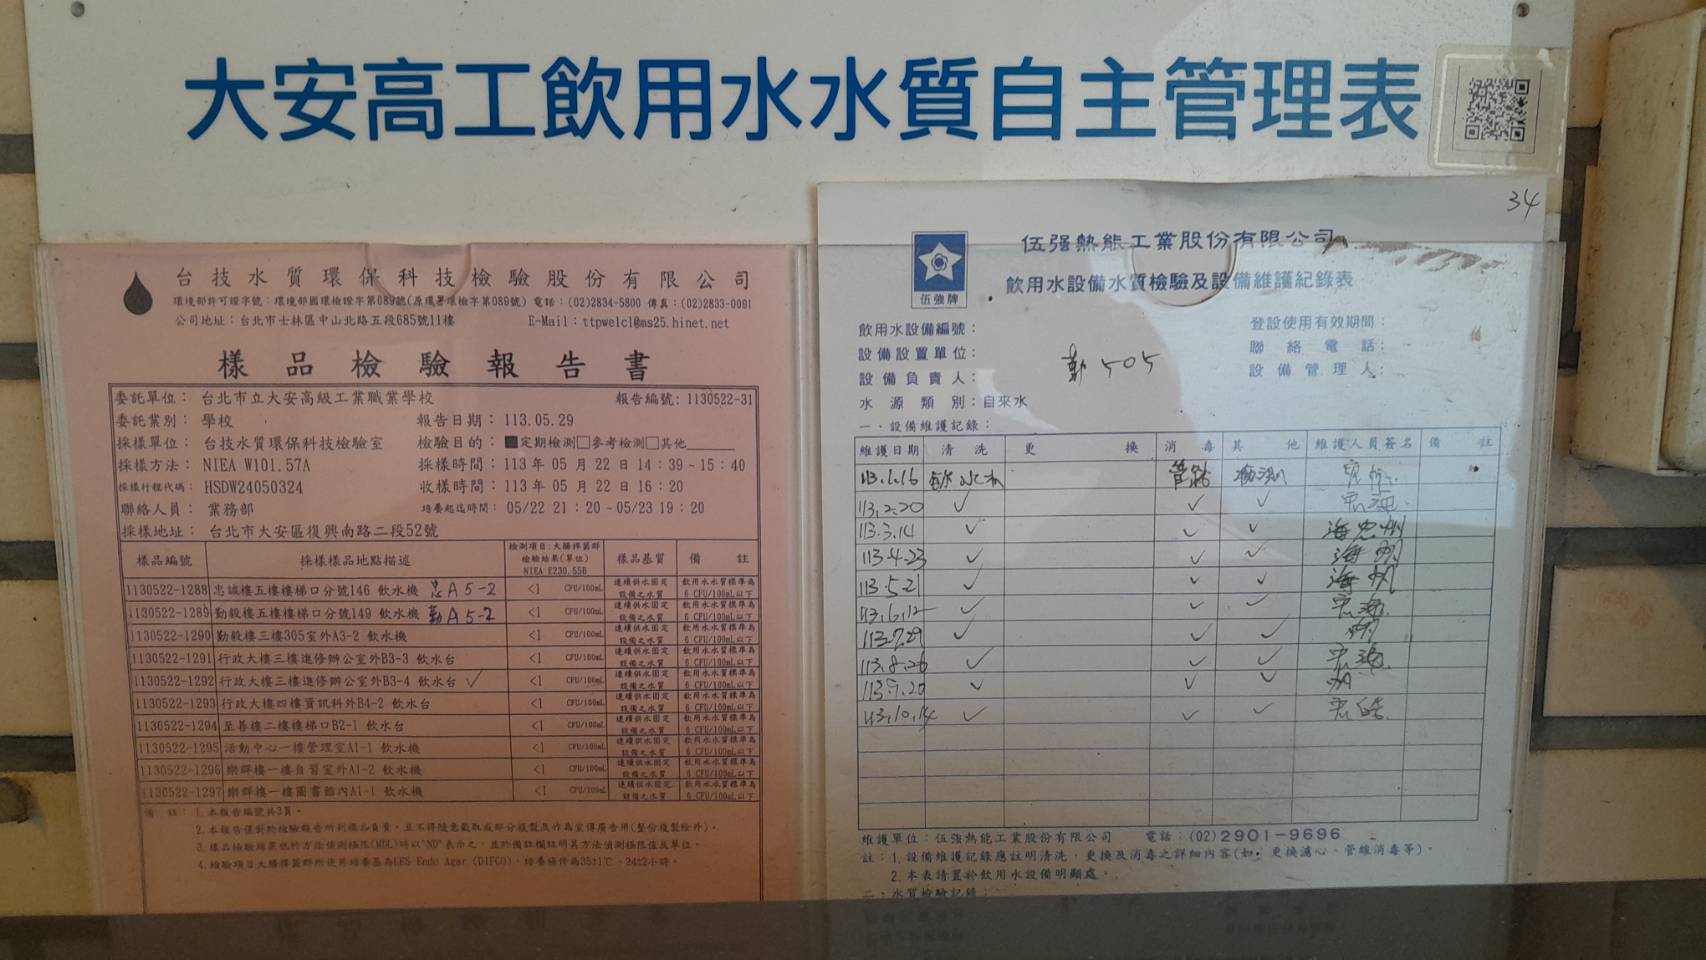 大安高工飲用水水質自主管理表
台技水質環保科技檢驗股份有限公司
環境部許可證字號：環境部國環檢證字第089號(原環署環檢字第089號) 電話：(02)2834-5800 傳真：(02)2833-0091
公司地址：台北市士林區中山北路五段685號11樓 E-Mail：ttpwelcl@ms25.hinet.net
樣品檢驗報告書
委託單位： 台北市立大安高級工業職業學校 報告編號：1130522-31
委託業別： 學校 報告日期： 113.05.29
採樣單位： 台技水質環保科技檢驗室 檢驗目的： ■定期檢測□參考檢測□其他
採樣方法： NIEA W101.57A 採樣時間： 113 年 05 月 22 日 14：39～15：40
採樣行程代碼： HSDW24050324 收樣時間： 113 年 05 月 22 日 16：20
聯絡人員： 業務部 培養起迄時間： 05/22 21：20～05/23 19：20
採樣地址： 台北市大安區復興南路二段52號
樣品編號 採樣樣品地點描述 檢測項目：大腸桿菌群 檢驗結果(單位) NIEA E230.55B 樣品基質 備註
1130522-1288 忠誠樓五樓樓梯口分號146 飲水機 忠A5-2 <1 CFU/100mL 連續供水固定設備之水質 飲用水水質標準為 6 CFU/100mL以下
1130522-1289 勤毅樓五樓樓梯口分號149 飲水機 勤A5-2 <1 CFU/100mL 連續供水固定設備之水質 飲用水水質標準為 6 CFU/100mL以下
1130522-1290 勤毅樓三樓305室外A3-2 飲水機 <1 CFU/100mL 連續供水固定設備之水質 飲用水水質標準為 6 CFU/100mL以下
1130522-1291 行政大樓三樓進修辦公室外B3-3 飲水台 <1 CFU/100mL 連續供水固定設備之水質 飲用水水質標準為 6 CFU/100mL以下
1130522-1292 行政大樓三樓進修辦公室外B3-4 飲水台 ✓ <1 CFU/100mL 連續供水固定設備之水質 飲用水水質標準為 6 CFU/100mL以下
1130522-1293 行政大樓四樓資訊科外B4-2 飲水台 <1 CFU/100mL 連續供水固定設備之水質 飲用水水質標準為 6 CFU/100mL以下
1130522-1294 至善樓二樓樓梯口B2-1 飲水台 <1 CFU/100mL 連續供水固定設備之水質 飲用水水質標準為 6 CFU/100mL以下
1130522-1295 活動中心一樓管理室A1-1 飲水機 <1 CFU/100mL 連續供水固定設備之水質 飲用水水質標準為 6 CFU/100mL以下
1130522-1296 樂群樓一樓自習室外A1-2 飲水機 <1 CFU/100mL 連續供水固定設備之水質 飲用水水質標準為 6 CFU/100mL以下
1130522-1297 樂群樓一樓圖書館內A1-1 飲水機 <1 CFU/100mL 連續供水固定設備之水質 飲用水水質標準為 6 CFU/100mL以下
備 註：1.本報告編號共3頁。
2.本報告僅對於檢驗報告所列樣品負責，且不得隨意截取或部分複製及作為宣傳廣告用(整份複製除外)。
3.樣品檢驗結果低於方法偵測極限(MDL)時以"ND"表示之，並於備註欄註明其方法偵測極限值及單位。
4.檢驗項目大腸桿菌群所使用培養基為LES Endo Agar (DIFCO)，培養條件為35±1℃，24±2小時。
34
伍強牌
伍强熱能工業股份有限公司
飲用水設備水質檢驗及設備維護紀錄表
飲用水設備編號： 登設使用有效期間：
設備設置單位： 勤505 聯絡電話：
設備負責人： 設備管理人：
水源類別：自來水
一、設備維護記錄：
維護日期 清洗 更換 消毒 其他 維護人員簽名 備註
113.1.16 管路 檢測
113.2.20 ✓ ✓ ✓
113.3.14 ✓ ✓ ✓
113.4.23 ✓ ✓ ✓
113.5.21 ✓ ✓ ✓
113.6.12 ✓ ✓ ✓
113.7.29 ✓ ✓ ✓
113.8.26 ✓ ✓ ✓
113.9.20 ✓ ✓ ✓
113.10.14 ✓ ✓ ✓
維護單位：伍強熱能工業股份有限公司 電話：(02)2901-9696
註：1.設備維護記錄應註明清洗，更換及消毒之詳細內容(如：更換濾心、管線消毒等)。
2.本表請置於飲用水設備明顯處。
二、水質檢驗記錄：